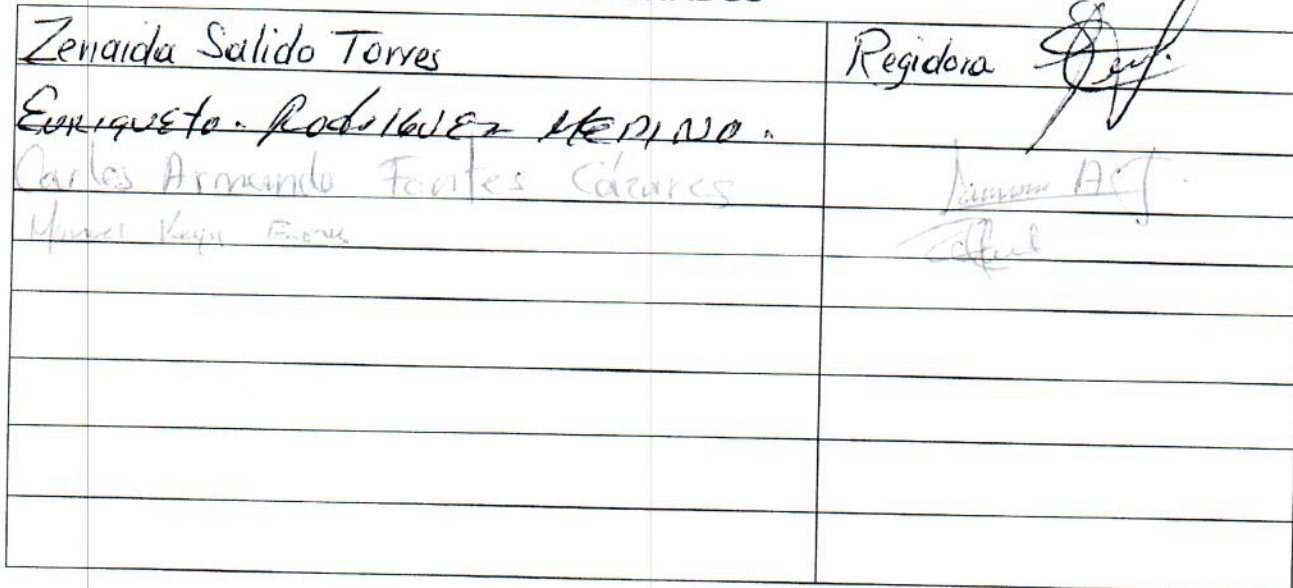 Zenaida Salido Torres Regidora
Enriqueto. Rodriguez MEDINO.
Carlos Armando Fontes Cázares
Manuel